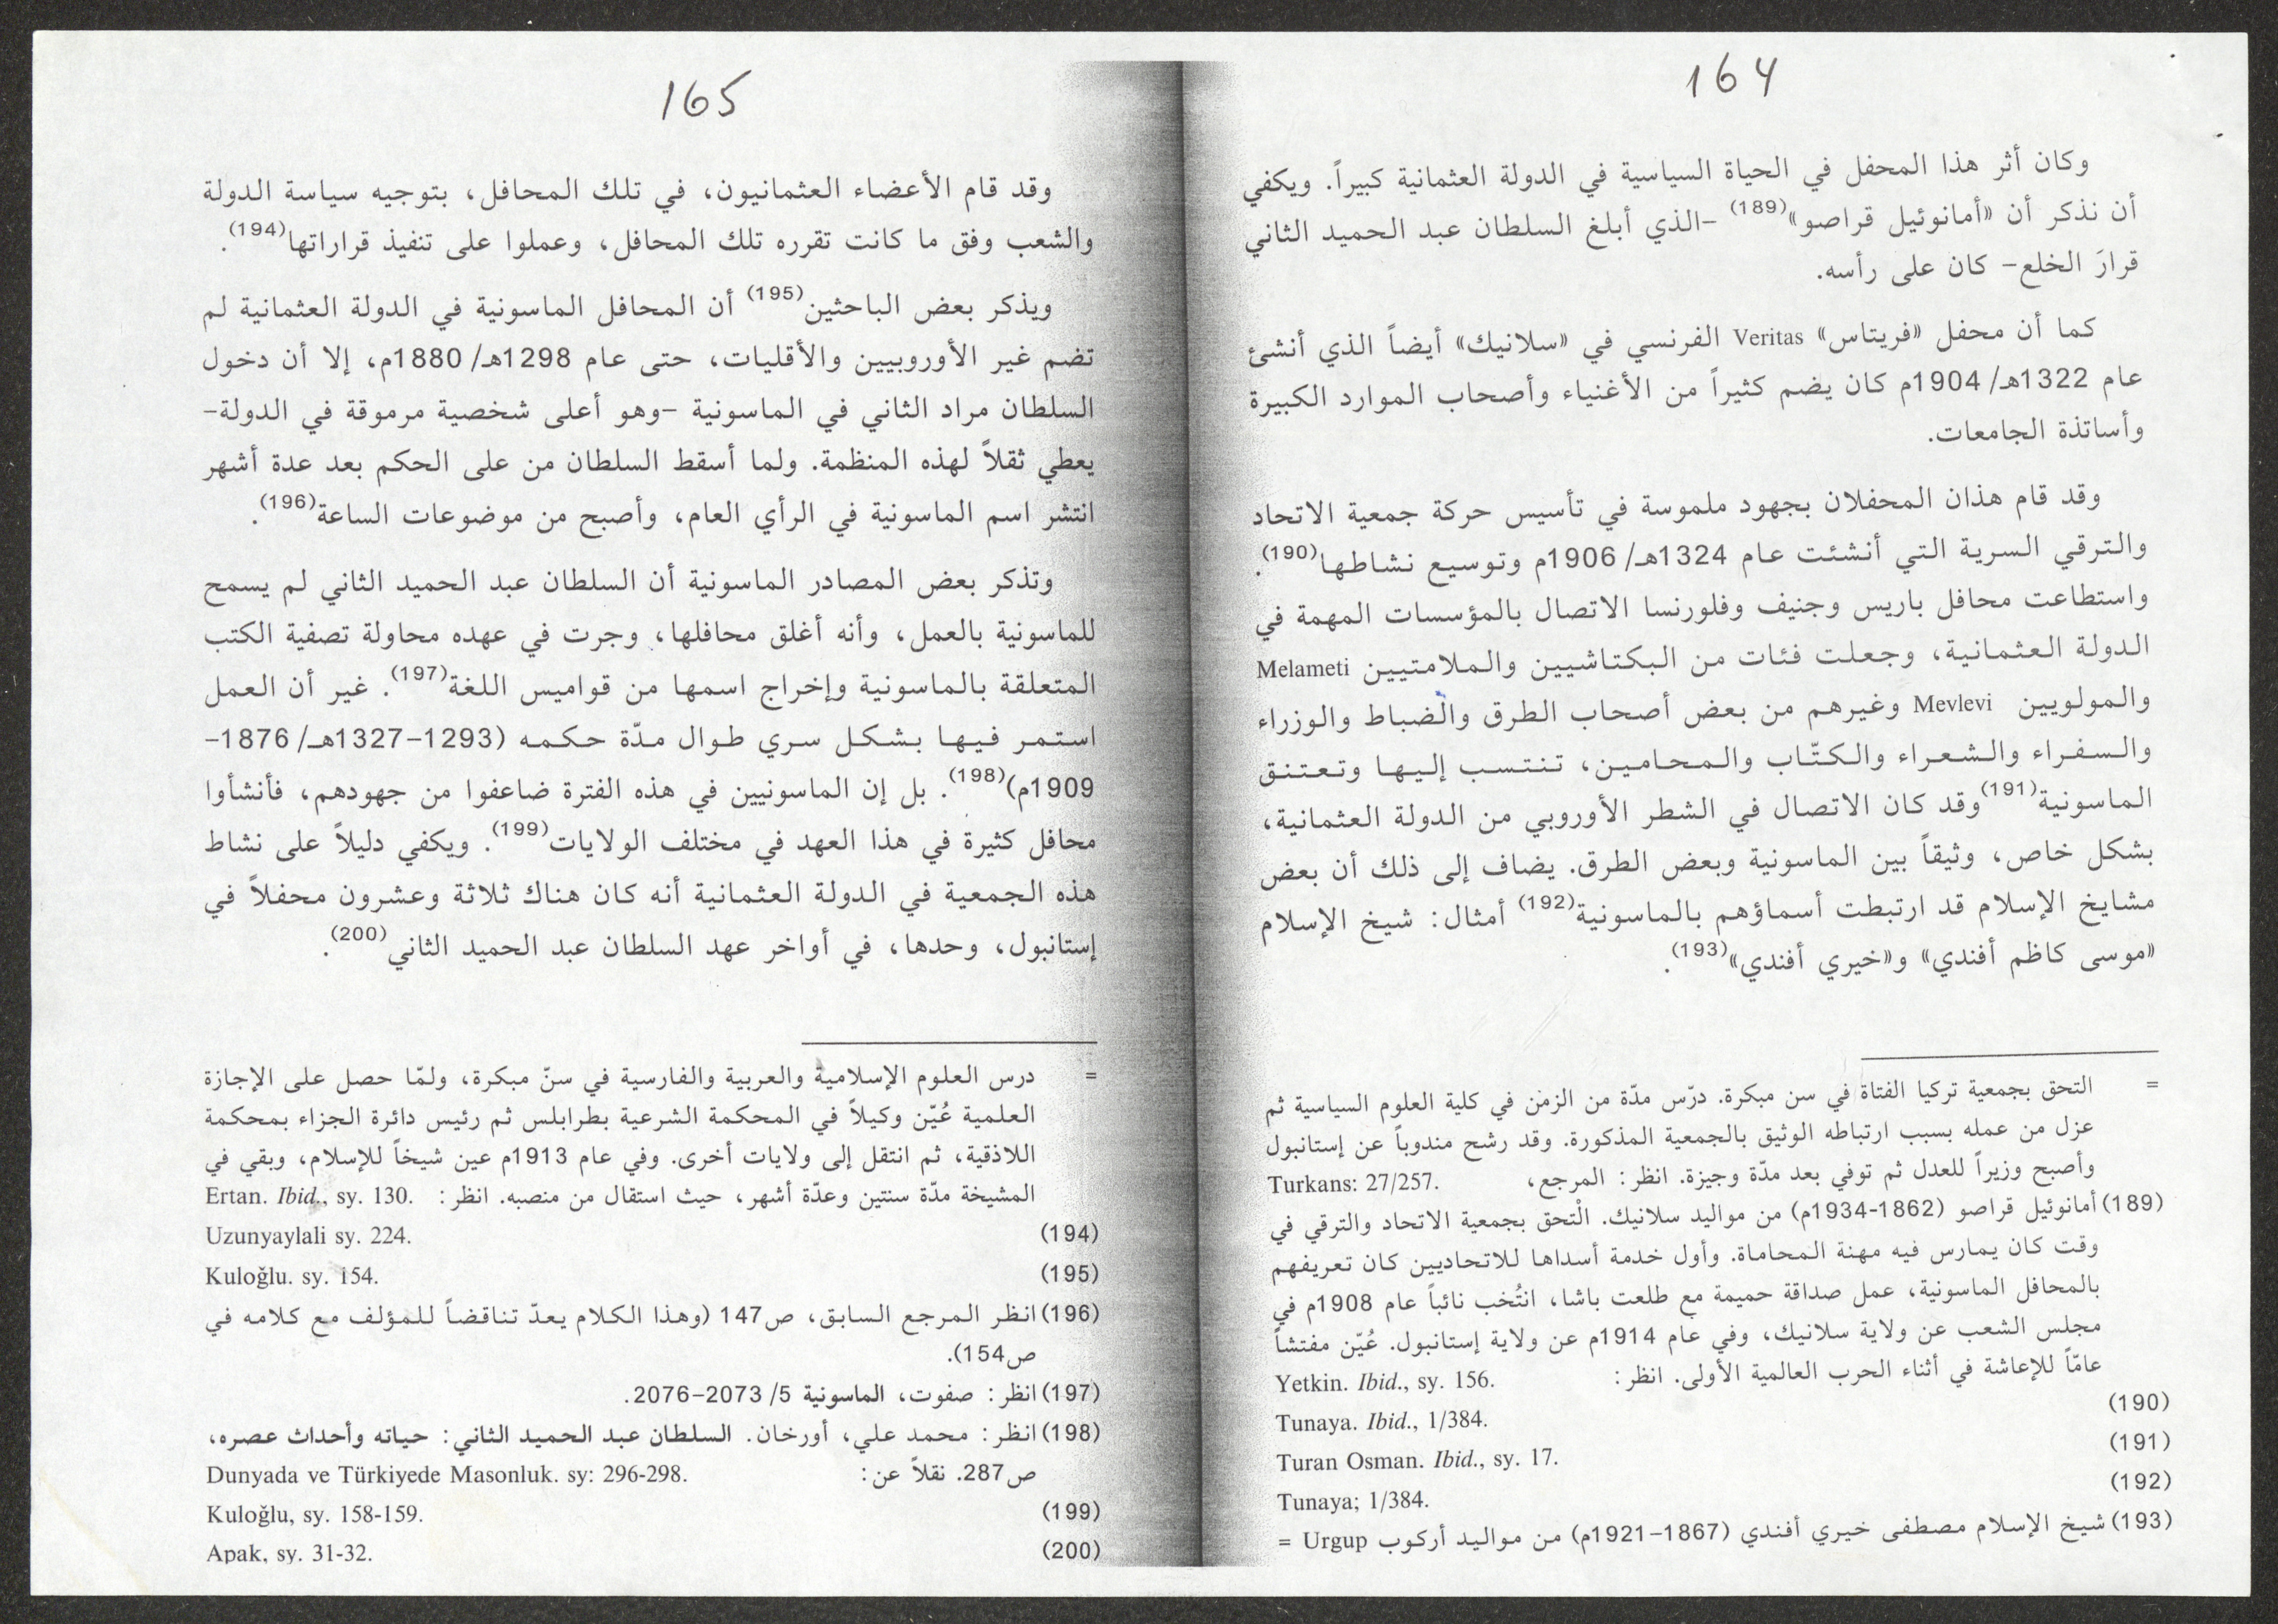 164
وكان أثر هذا المحفل في الحياة السياسية في الدولة العثمانية كبيراً. ويكفي
أن نذكر أن «أمانوئيل قراصو»(189) -الذي أبلغ السلطان عبد الحميد الثاني
قرارَ الخلع- كان على رأسه.
كما أن محفل «فريتاس» Veritas الفرنسي في «سلانيك» أيضاً الذي أنشئ
عام 1322هـ/ 1904م كان يضم كثيراً من الأغنياء وأصحاب الموارد الكبيرة
وأساتذة الجامعات.
وقد قام هذان المحفلان بجهود ملموسة في تأسيس حركة جمعية الاتحاد
والترقي السرية التي أنشئت عام 1324هـ/ 1906م وتوسيع نشاطها(190).
واستطاعت محافل باريس وجنيف وفلورنسا الاتصال بالمؤسسات المهمة في
الدولة العثمانية، وجعلت فئات من البكتاشيين والملامتيين Melameti
والمولويين Mevlevi وغيرهم من بعض أصحاب الطرق والضباط والوزراء
والسفراء والشعراء والكتّاب والمحامين، تنتسب إليها وتعتنق
الماسونية(191) وقد كان الاتصال في الشطر الأوروبي من الدولة العثمانية،
بشكل خاص، وثيقاً بين الماسونية وبعض الطرق. يضاف إلى ذلك أن بعض
مشايخ الإسلام قد ارتبطت أسماؤهم بالماسونية(192) أمثال: شيخ الإسلام
«موسى كاظم أفندي» و«خيري أفندي»(193).
= التحق بجمعية تركيا الفتاة في سن مبكرة. درّس مدّة من الزمن في كلية العلوم السياسية ثم
عزل من عمله بسبب ارتباطه الوثيق بالجمعية المذكورة. وقد رشح مندوباً عن إستانبول
وأصبح وزيراً للعدل ثم توفي بعد مدّة وجيزة. انظر: المرجع، Turkans: 27/257.
(189) أمانوئيل قراصو (1862-1934م) من مواليد سلانيك. الْتحق بجمعية الاتحاد والترقي في
وقت كان يمارس فيه مهنة المحاماة. وأول خدمة أسداها للاتحاديين كان تعريفهم
بالمحافل الماسونية، عمل صداقة حميمة مع طلعت باشا، انتُخب نائباً عام 1908م في
مجلس الشعب عن ولاية سلانيك، وفي عام 1914م عن ولاية إستانبول. عُيّن مفتشاً
عامّاً للإعاشة في أثناء الحرب العالمية الأولى. انظر: Yetkin. Ibid., sy. 156.
(190) Tunaya. Ibid., 1/384.
(191) Turan Osman. Ibid., sy. 17.
(192) Tunaya; 1/384.
(193) شيخ الإسلام مصطفى خيري أفندي (1867-1921م) من مواليد أركوب Urgup =
165
وقد قام الأعضاء العثمانيون، في تلك المحافل، بتوجيه سياسة الدولة
والشعب وفق ما كانت تقرره تلك المحافل، وعملوا على تنفيذ قراراتها(194).
ويذكر بعض الباحثين(195) أن المحافل الماسونية في الدولة العثمانية لم
تضم غير الأوروبيين والأقليات، حتى عام 1298هـ/ 1880م، إلا أن دخول
السلطان مراد الثاني في الماسونية -وهو أعلى شخصية مرموقة في الدولة-
يعطي ثقلاً لهذه المنظمة. ولما أسقط السلطان من على الحكم بعد عدة أشهر
انتشر اسم الماسونية في الرأي العام، وأصبح من موضوعات الساعة(196).
وتذكر بعض المصادر الماسونية أن السلطان عبد الحميد الثاني لم يسمح
للماسونية بالعمل، وأنه أغلق محافلها، وجرت في عهده محاولة تصفية الكتب
المتعلقة بالماسونية وإخراج اسمها من قواميس اللغة(197). غير أن العمل
استمر فيها بشكل سري طوال مدّة حكمه (1293-1327هـ/ 1876-
1909م)(198). بل إن الماسونيين في هذه الفترة ضاعفوا من جهودهم، فأنشأوا
محافل كثيرة في هذا العهد في مختلف الولايات(199). ويكفي دليلاً على نشاط
هذه الجمعية في الدولة العثمانية أنه كان هناك ثلاثة وعشرون محفلاً في
إستانبول، وحدها، في أواخر عهد السلطان عبد الحميد الثاني(200).
= درس العلوم الإسلامية والعربية والفارسية في سنّ مبكرة، ولمّا حصل على الإجازة
العلمية عُيّن وكيلاً في المحكمة الشرعية بطرابلس ثم رئيس دائرة الجزاء بمحكمة
اللاذقية، ثم انتقل إلى ولايات أخرى. وفي عام 1913م عين شيخاً للإسلام، وبقي في
المشيخة مدّة سنتين وعدّة أشهر، حيث استقال من منصبه. انظر: Ertan. Ibid., sy. 130.
(194) Uzunyaylali sy. 224.
(195) Kuloğlu. sy. 154.
(196) انظر المرجع السابق، ص147 (وهذا الكلام يعدّ تناقضاً للمؤلف مع كلامه في
ص154).
(197) انظر: صفوت، الماسونية 5/ 2073-2076.
(198) انظر: محمد علي، أورخان. السلطان عبد الحميد الثاني: حياته وأحداث عصره،
ص287. نقلاً عن: Dunyada ve Türkiyede Masonluk. sy: 296-298.
(199) Kuloğlu, sy. 158-159.
(200) Apak, sy. 31-32.